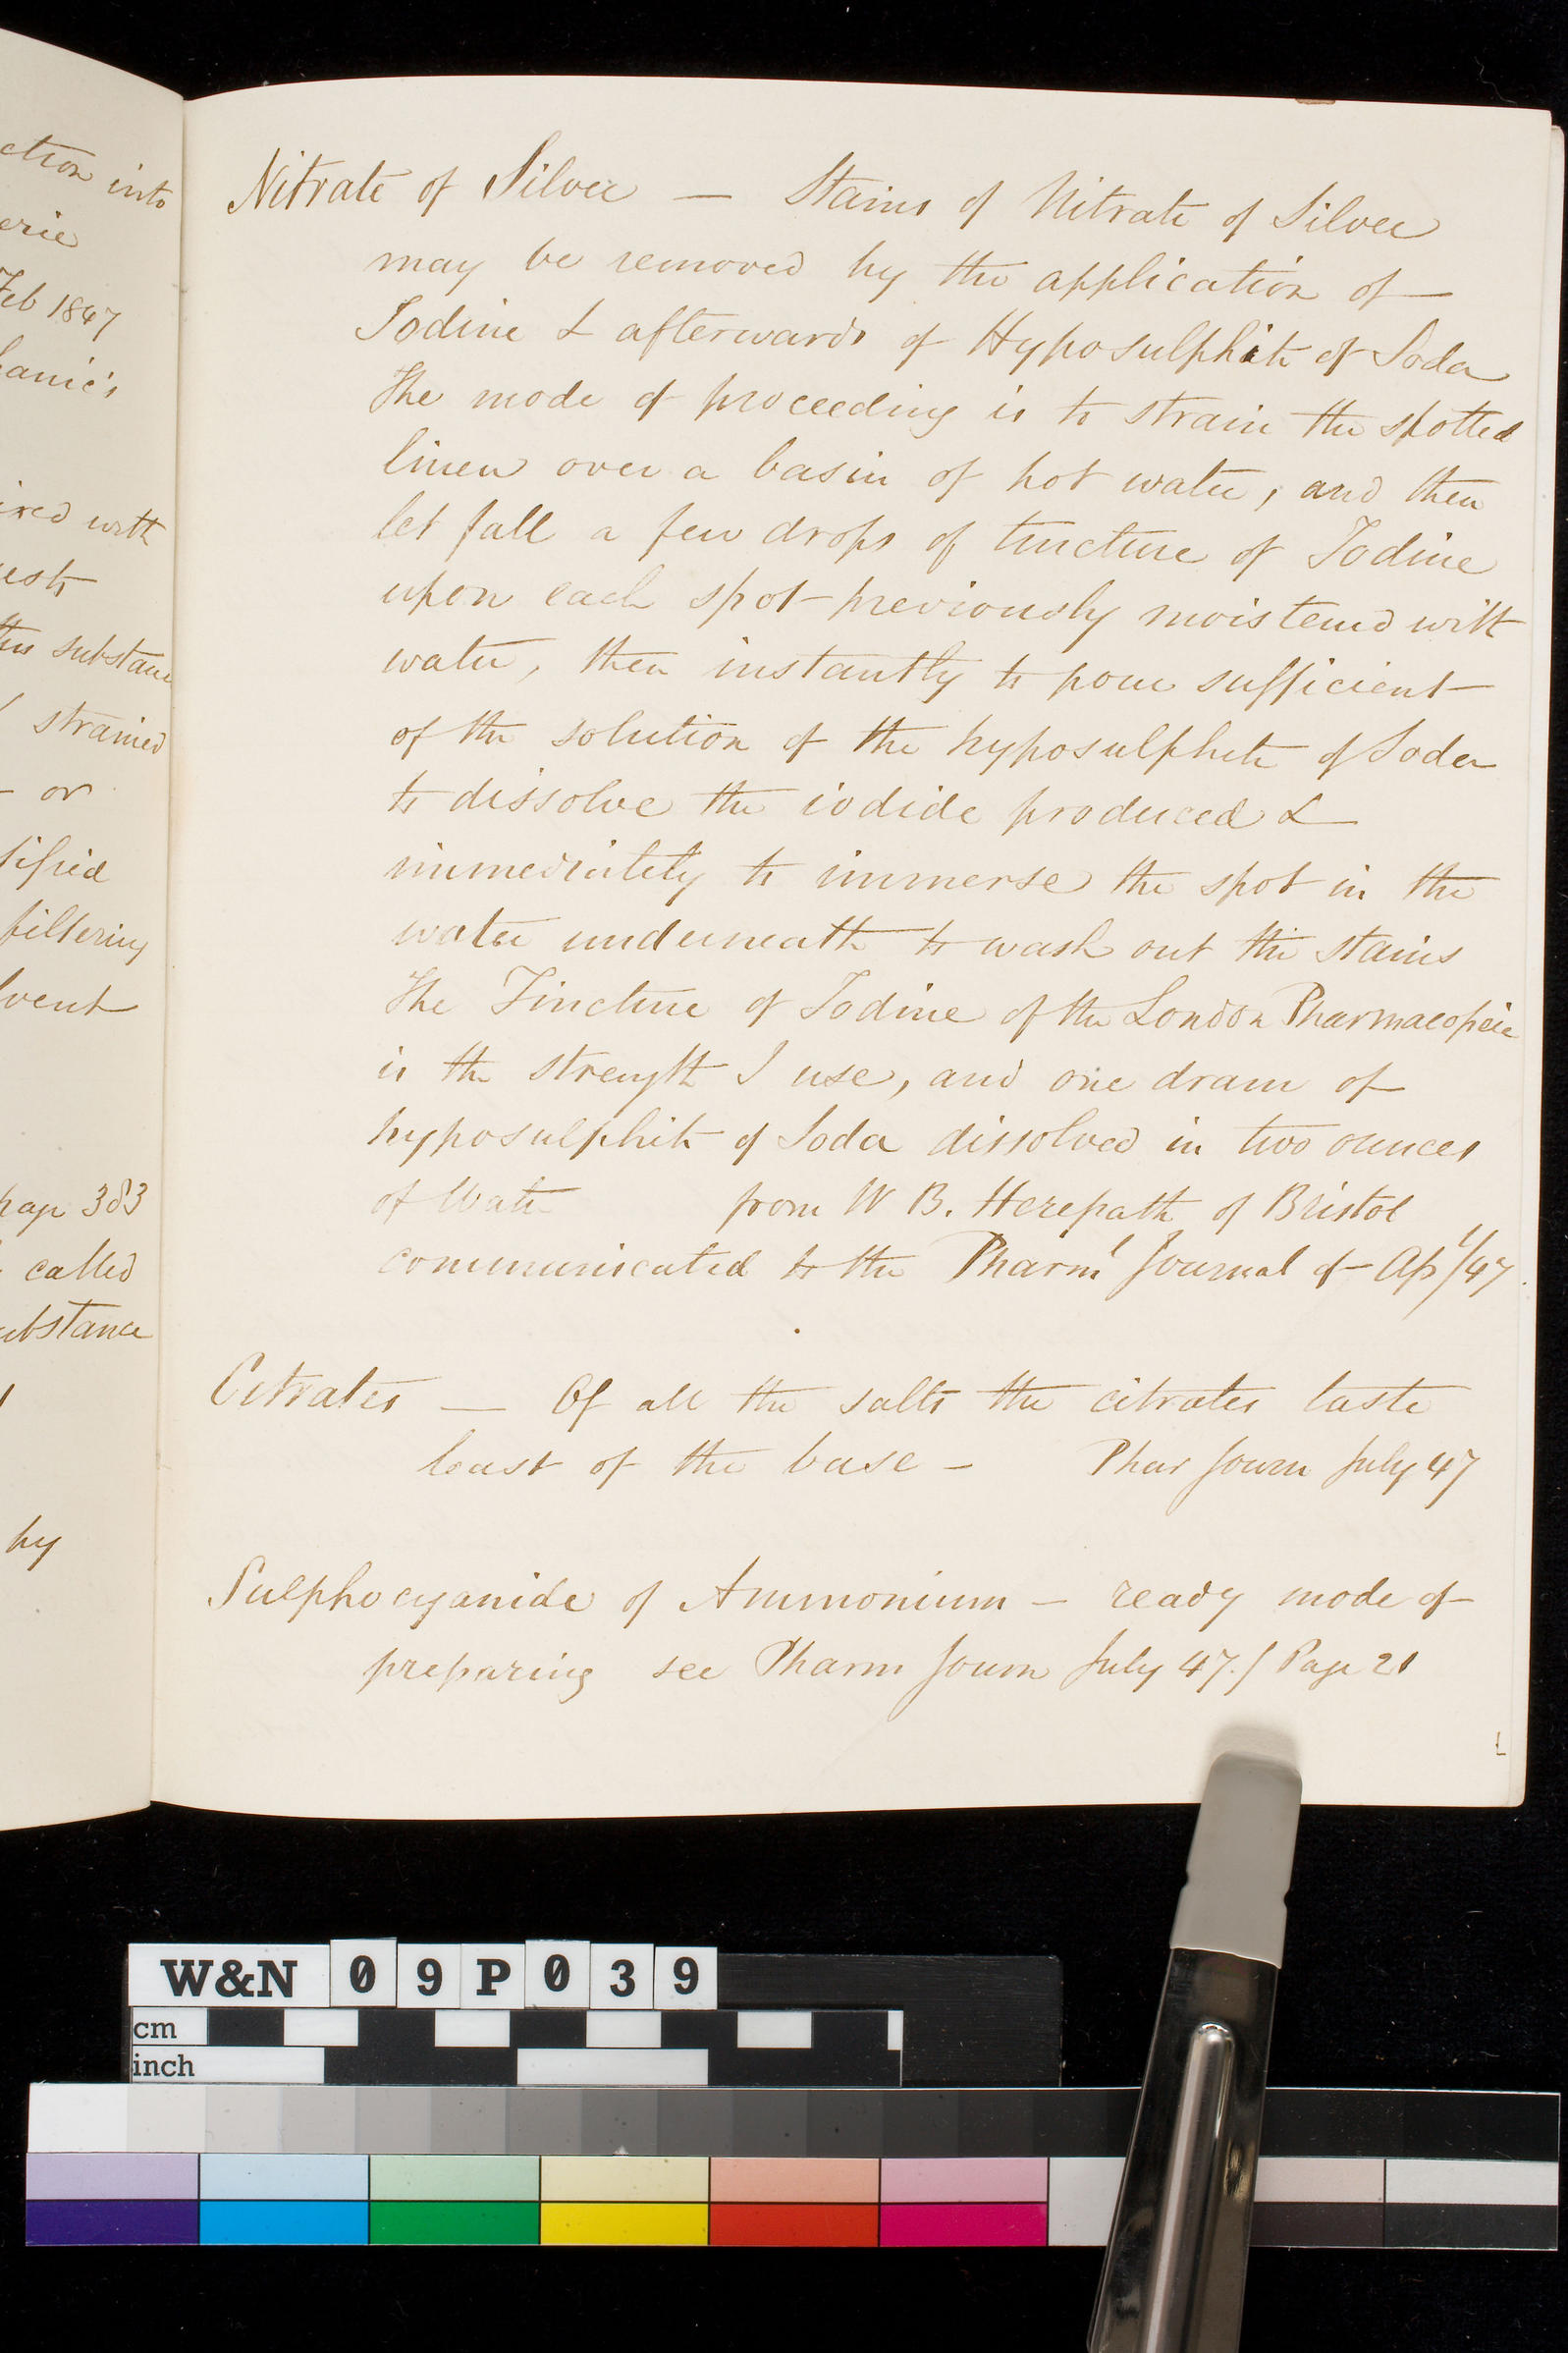 ction into
erie
Feb 1847
hanic's
ired with
this substance
strained
or
sified
filtering
lvent
page 383
called
substance
by
Nitrate of Silver — Stains of Nitrate of Silver
may be removed by the application of
Iodine & afterwards of Hyposulphite of Soda
The mode of proceeding is to strain the spotted
linen over a basin of hot water, and then
let fall a few drops of tincture of Iodine
upon each spot previously moistened with
water, then instantly to pour sufficient
of the solution of the hyposulphite of Soda
to dissolve the iodide produced &
immediately to immerse the spot in the
water underneath to wash out the stains
The Tincture of Iodine of the London Pharmacopeia
is the strength I use, and one dram of
hyposulphite of Soda dissolved in two ounces
of Water from W B. Herepath of Bristol
communicated to the Pharml Journal of Apl/47.
Citrates — Of all the salts the citrates taste
least of the base – Phar Journ July 47
Sulphocyanide of Ammonium – ready mode of
preparing see Pharm Journ July 47./ Page 21
W&N 09P039
cm
inch